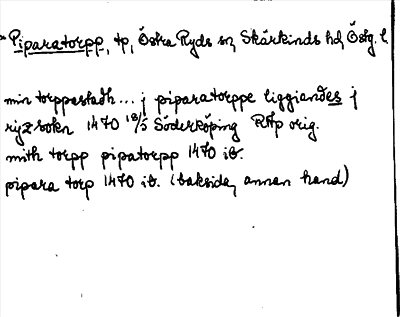 Piparatorpp, tp, Östra Ryds sn, Skärkinds hd, Östg. l.
min torppastadh... j piparatorppe liggiandes j
rijz sokn 1470 18/5 Söderköping RAp orig.
mith torpp pipatorpp 1470 ib.
pipara torp 1470 ib. (baksida, annan hand)